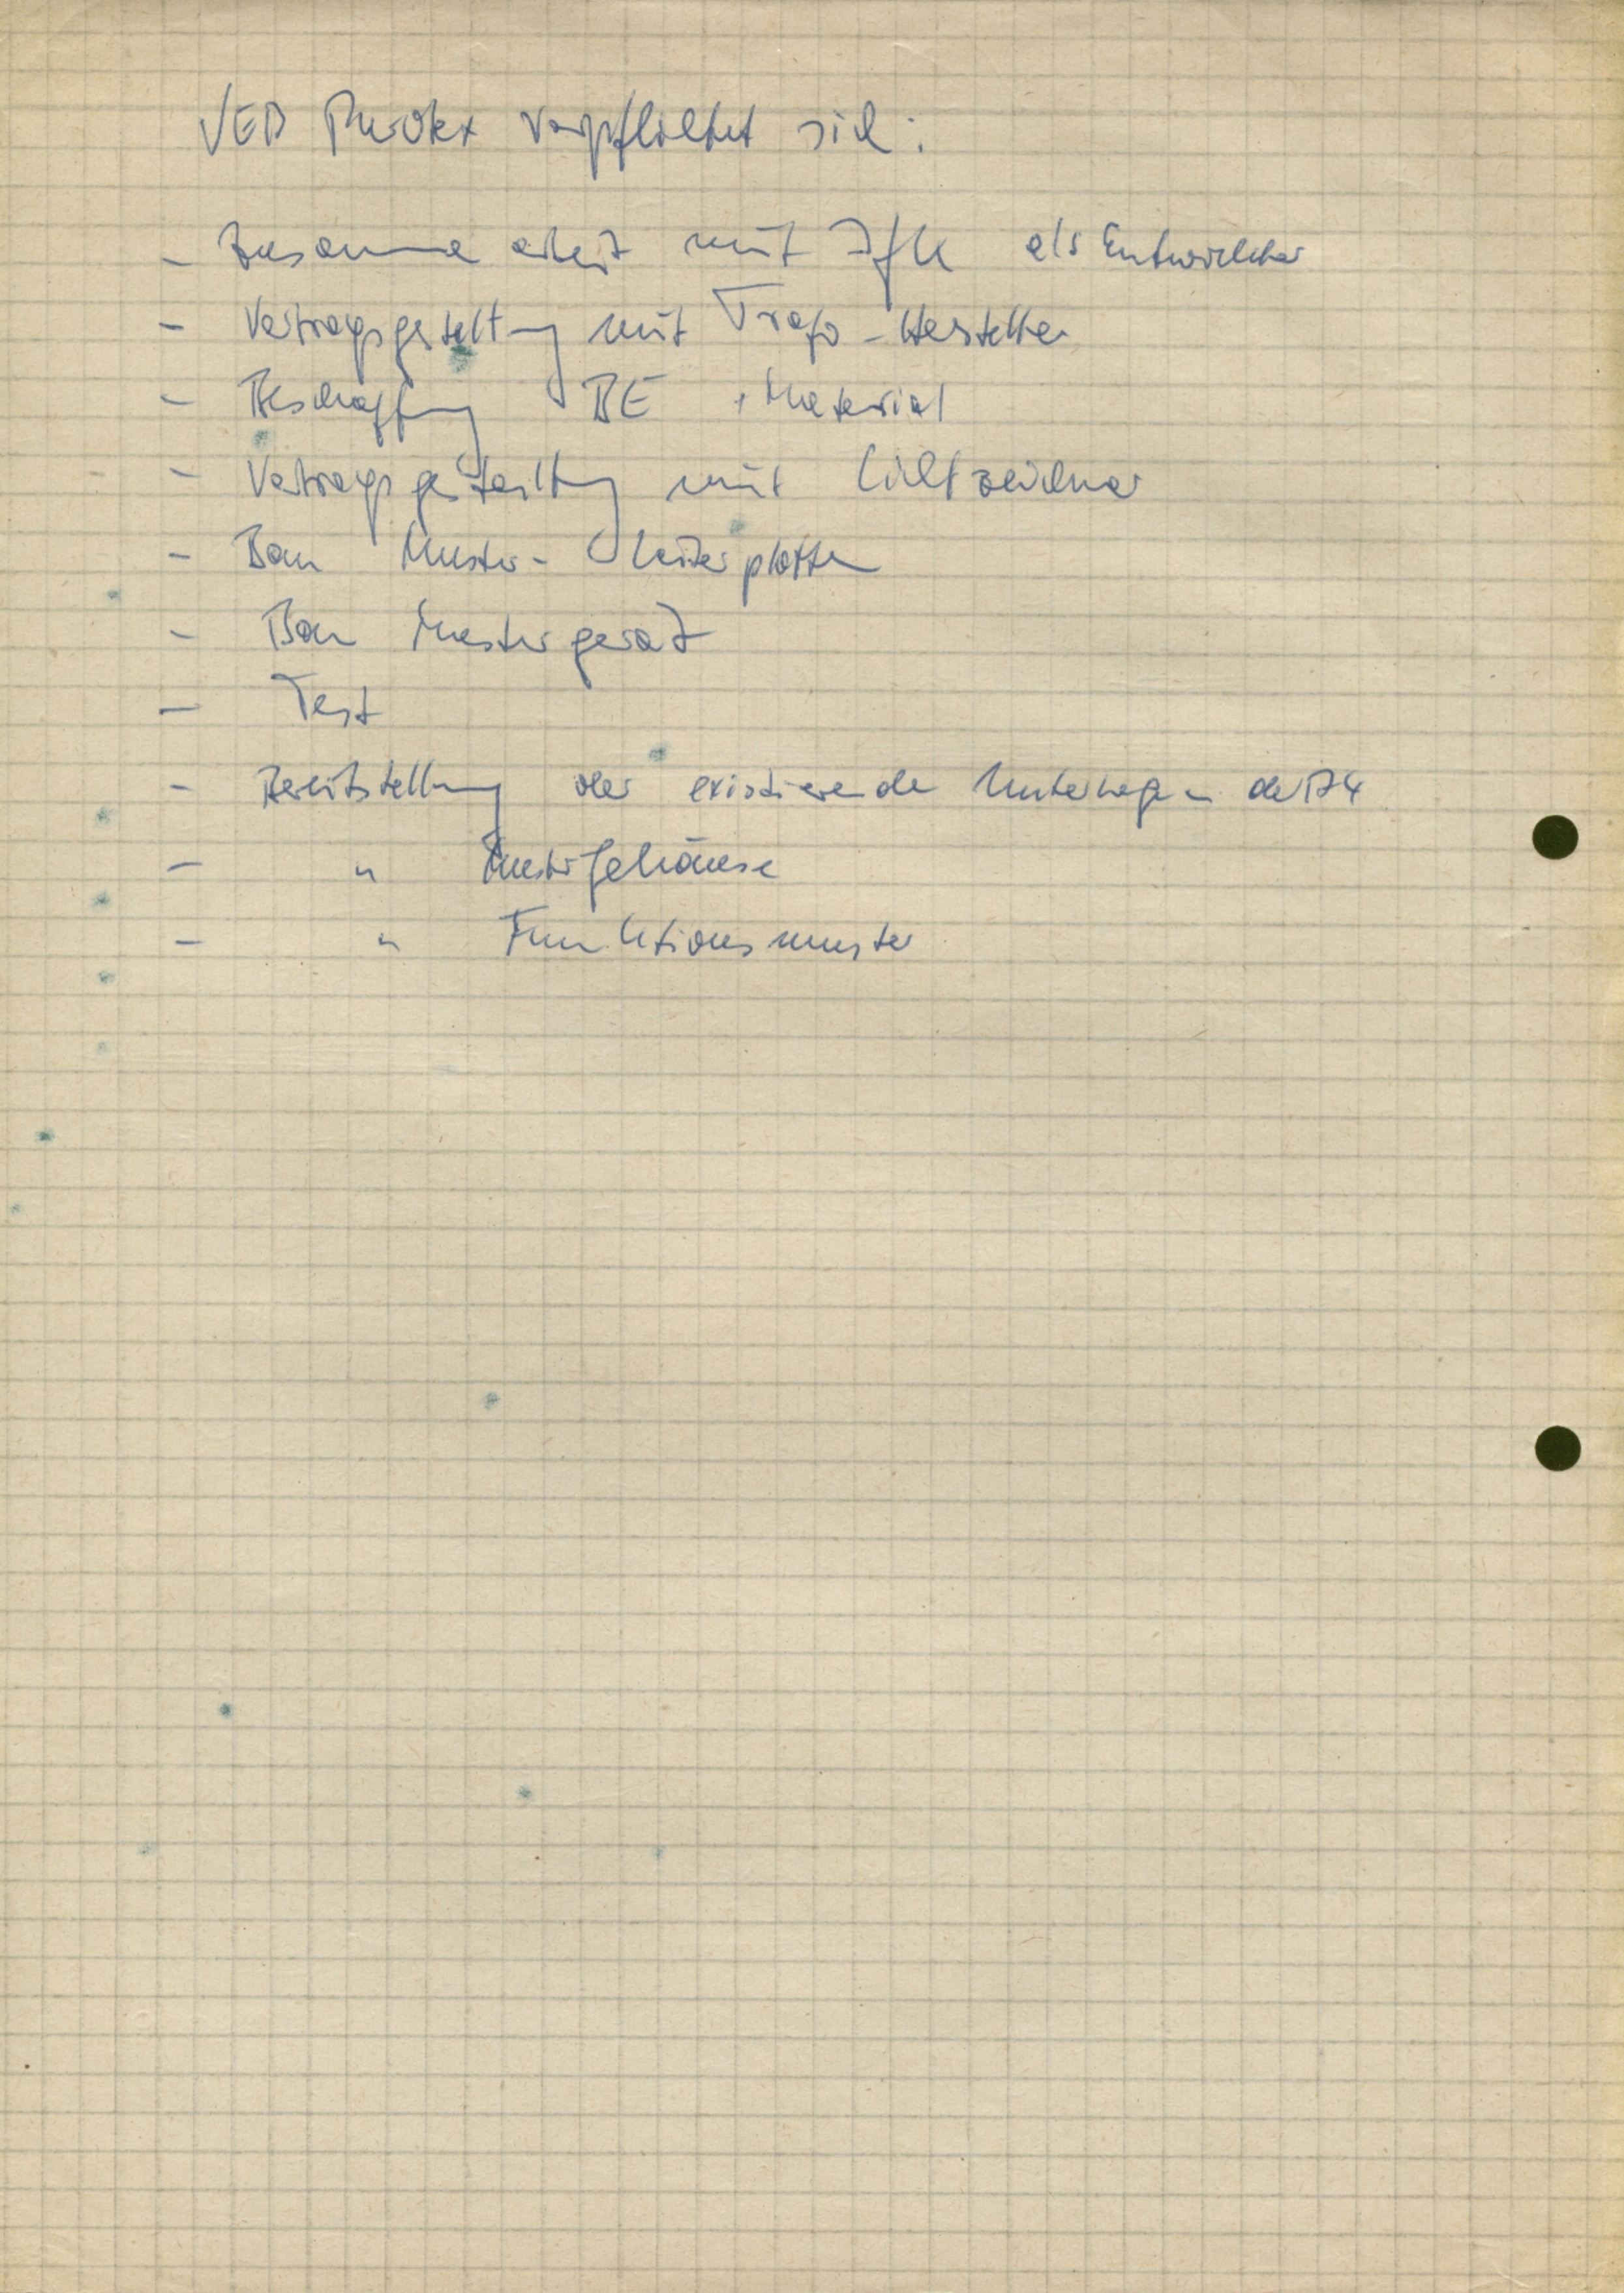 VEB verpflichtet sich:
- Zusammenarbeit mit IfK als Entwickler
- Vertragsgestaltung mit Trafo-Hersteller
- Beschaffung BE + Material
- Vertragsgestaltung mit Lichtzeichner
- Bau Muster-Leiterplatten
- Bau Mustergerät
- Test
- Bereitstellung der existierenden Unterlagen der
- " Mustergehäuse
- " Funktionsmuster